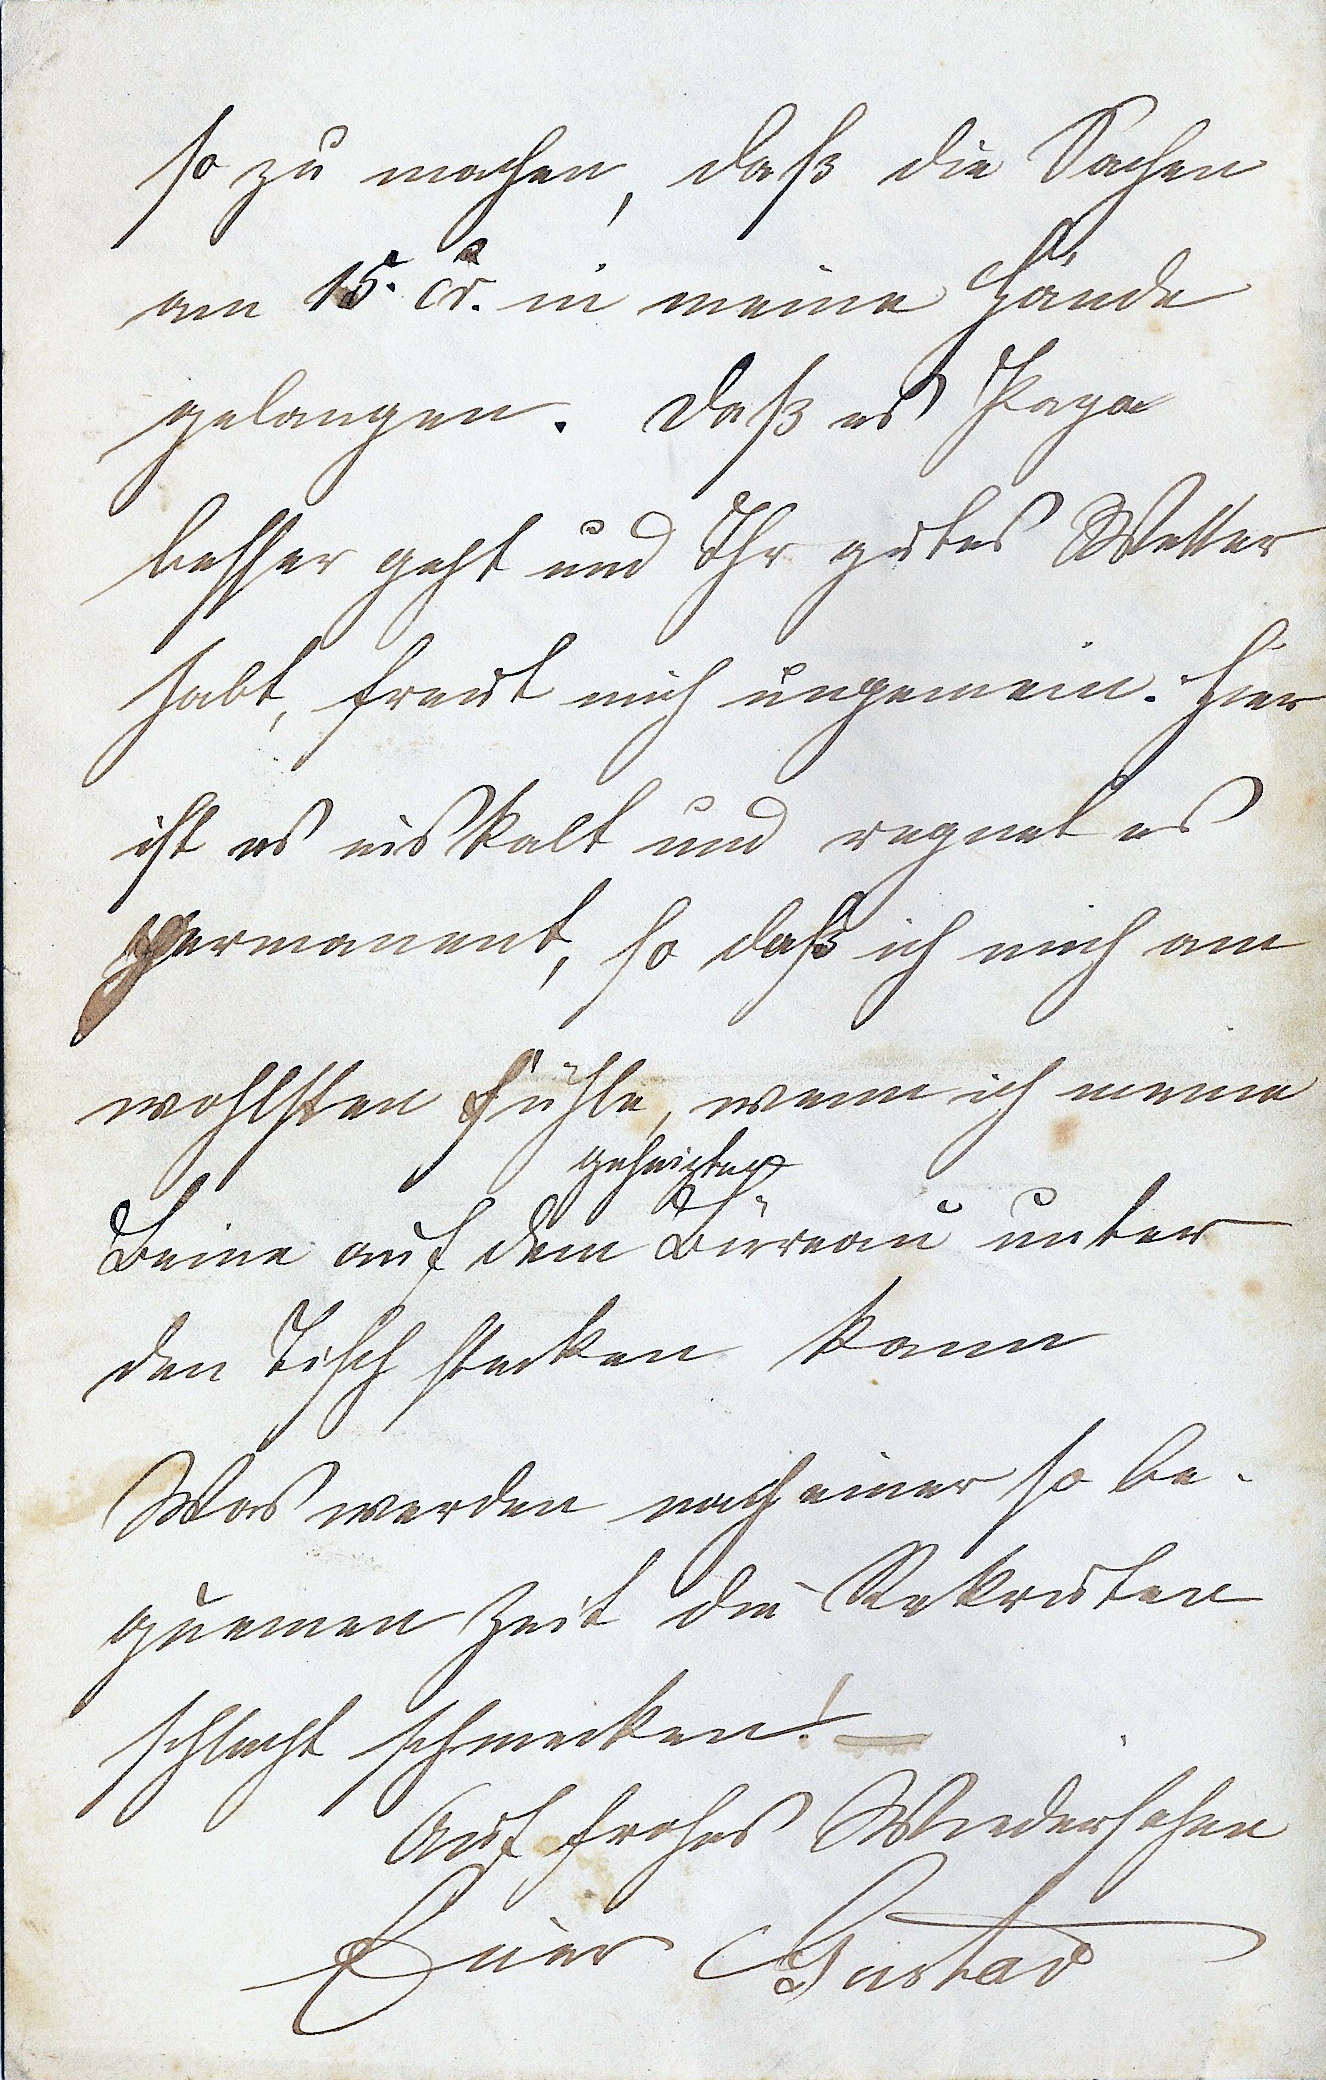 so zu machen, daß die Sachen
am 15. cr. in meine Hände
gelangen. Daß es Papa
besser geht und Ihr gutes Wetter
habt, freut mich ungemein. Hier
ist es eiskalt und regnet es
permanent, so daß ich mich am
wohlsten fühle, wenn ich meine
geheizten
Beine auf dem Büreau unter
den Tisch stecken kann
Was werden nach einer so be-
quemen Zeit die Rekruten
schlecht schmecken! —
Auf frohes Wiedersehen
Euer Gustav